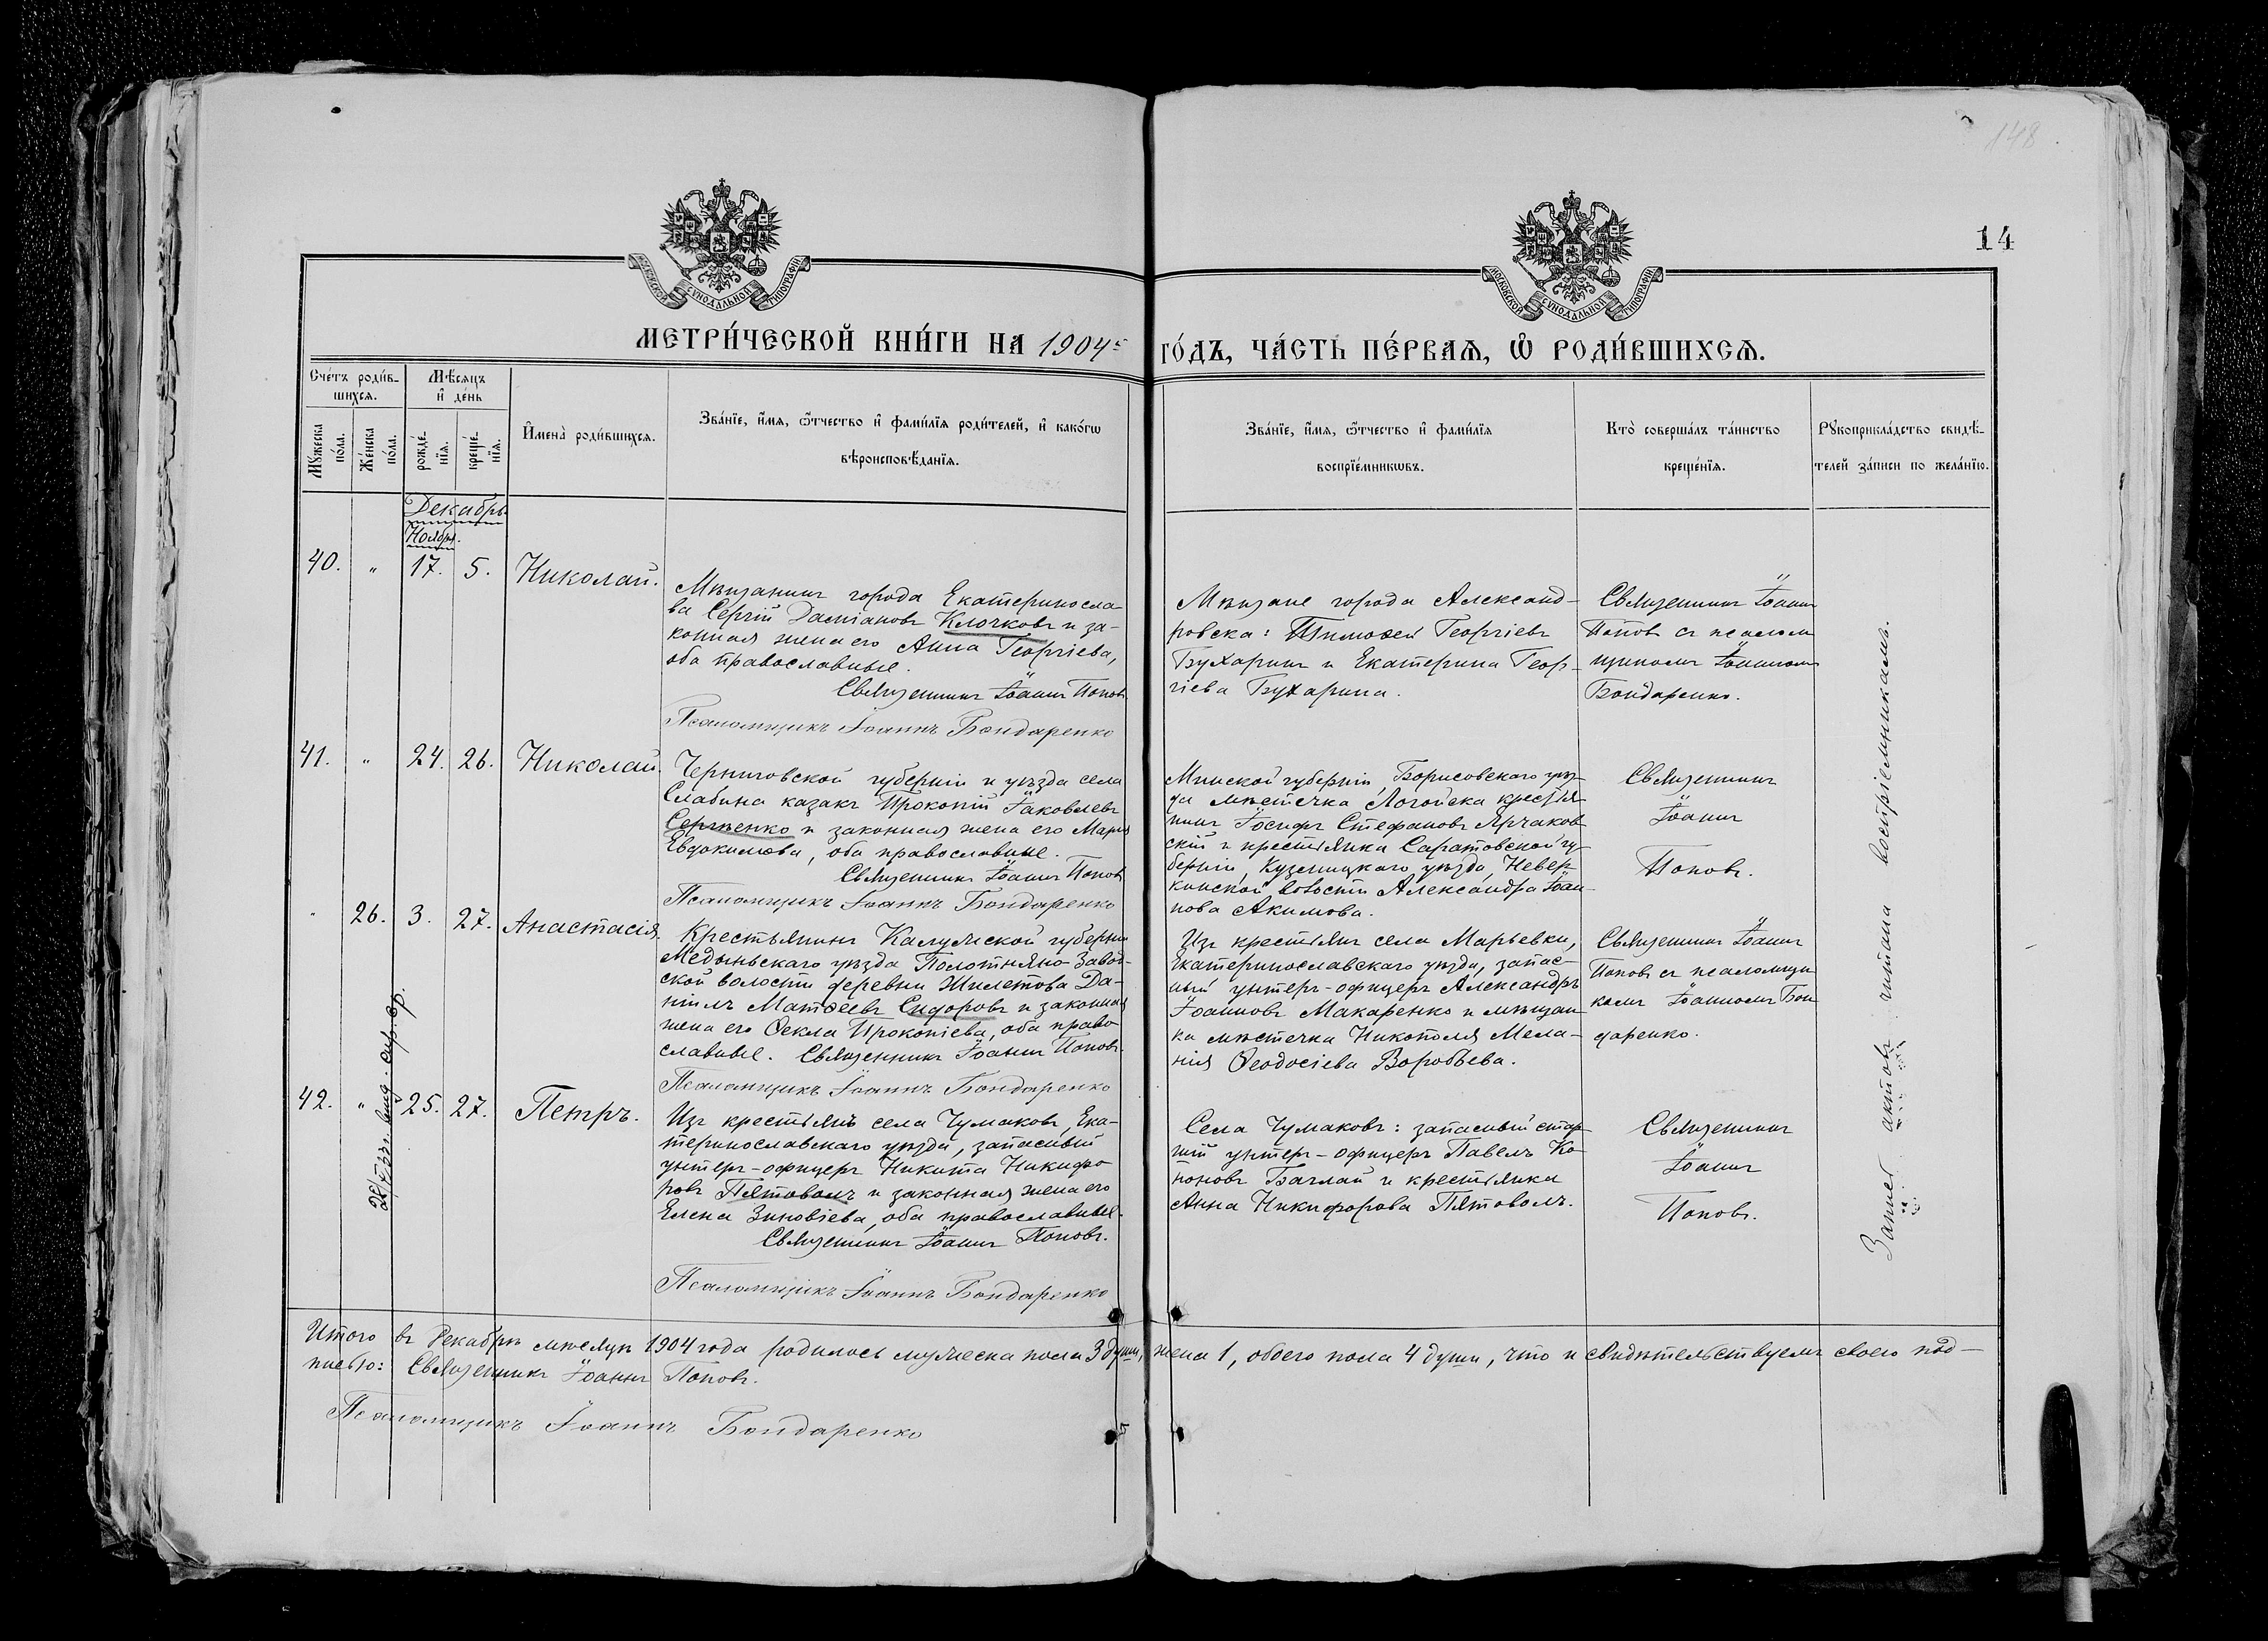 148
14
МОСКОВСКОЙ СѴНОДАЛЬНОЙ ТИПОГРАФІИ
МОСКОВСКОЙ СѴНОДАЛЬНОЙ ТИПОГРАФІИ
МЕТРИ́ЧЕСКОЙ КНИ́ГИ НА 1904 й ГО́ДЪ, ЧА́СТЬ ПЕ́РВАѦ, Ѽ РОДИ́ВШИХСѦ.
Сче́тъ роди́в-
шихсѧ.
Мѣ́сѧцъ
и҆ де́нь
Мꙋ́жеска
по́ла.
Же́нска
по́ла.
рожде́-
нїѧ.
креще́-
нїѧ.
И҆мена̀ роди́вшихсѧ.
Зва́нїе, и҆́мѧ, ѻ҆́тчество и҆ фами́лїѧ роди́телей, и҆ како́гѡ
вѣроисповѣ́данїѧ.
Зва́нїе, и҆́мѧ, ѻ҆́тчество и҆ фами́лїѧ
воспрїе́мникѡвъ.
Кто̀ соверша́лъ та́инство
креще́нїѧ.
Рꙋкоприкла́дство свидѣ́-
телей за́писи по жела́нїю.
Декабрь
Ноябрь.
40. „ 17. 5. Николай.
Мѣщанинъ города Екатериносла-
ва Сергій Даміановъ Клочковъ и за-
конная жена его Анна Георгіева,
оба православные.
Священникъ Іоаннъ Поповъ
Псаломщикъ Іоаннъ Бондаренко
Мѣщане города Александ-
ровска: Тимоѳей Георгіевъ
Бухаринъ и Екатерина Геор-
гіева Бухарина.
Священникъ Іоаннъ
Поповъ съ псалом
щикомъ Іоанномъ
Бондаренко.
41. „ 24. 26. Николай.
Черниговской губерніи и уѣзда села
Слабина казакъ Прокопій Іаковлевъ
Сергѣенко и законная жена его Марія
Евдокимова, оба православные.
Священникъ Іоаннъ Поповъ
Псаломщикъ Іоаннъ Бондаренко
Минской губерніи, Борисовскаго уѣз-
да мѣстечка Логойска крестья
нинъ Іосифъ Стефановъ Ярчаков
скій и крестьянка Саратовской гу-
берніи, Кузнецкаго уѣзда, Невер-
кинской волости Александра Іоан-
нова Акимова.
Священникъ
Іоаннъ
Поповъ.
„ 26. 3. 27. Анастасія.
Крестьянинъ Калужской губерніи
Медынскаго уѣзда Полотняно-Завод-
ской волости деревни Жилетова Да-
ніилъ Матѳеевъ Сидоровъ и законная
жена его Ѳекла Прокопіева, оба право-
славные. Священникъ Іоаннъ Поповъ.
Псаломщикъ Іоаннъ Бондаренко
Изъ крестьянъ села Марьевки,
Екатеринославскаго уѣзда, запас-
ный унтеръ-офицеръ Александръ
Іоанновъ Макаренко и мѣщан
ка мѣстечка Никополя Мела-
нія Ѳеодосіева Воробьева.
Священникъ Іоаннъ
Поповъ съ псаломщи
комъ Іоанномъ Бон
даренко.
42. „ 25. 27. Петръ.
Изъ крестьянъ села Чумаковъ, Ека-
теринославскаго уѣзда, запасный
унтеръ-офицеръ Никита Никифо
ровъ Пятоволъ и законная жена его
Елена Зиновіева, оба православные.
Священникъ Іоаннъ Поповъ.
Псаломщикъ Іоаннъ Бондаренко
Села Чумаковъ: запасный стар-
шій унтеръ-офицеръ Павелъ Ко-
ноновъ Баглай и крестьянка
Анна Никифорова Пятоволъ.
Священникъ
Іоаннъ
Поповъ.
Запись актовъ читана воспріемникамъ.
Итого въ Декабрѣ мѣсяцѣ 1904 года родилось мужеска пола 3 души, жена 1, обоего пола 4 души, что и свидѣтельствуемъ своею под-
писью: Священникъ Іоаннъ Поповъ.
Псаломщикъ Іоаннъ Бондаренко